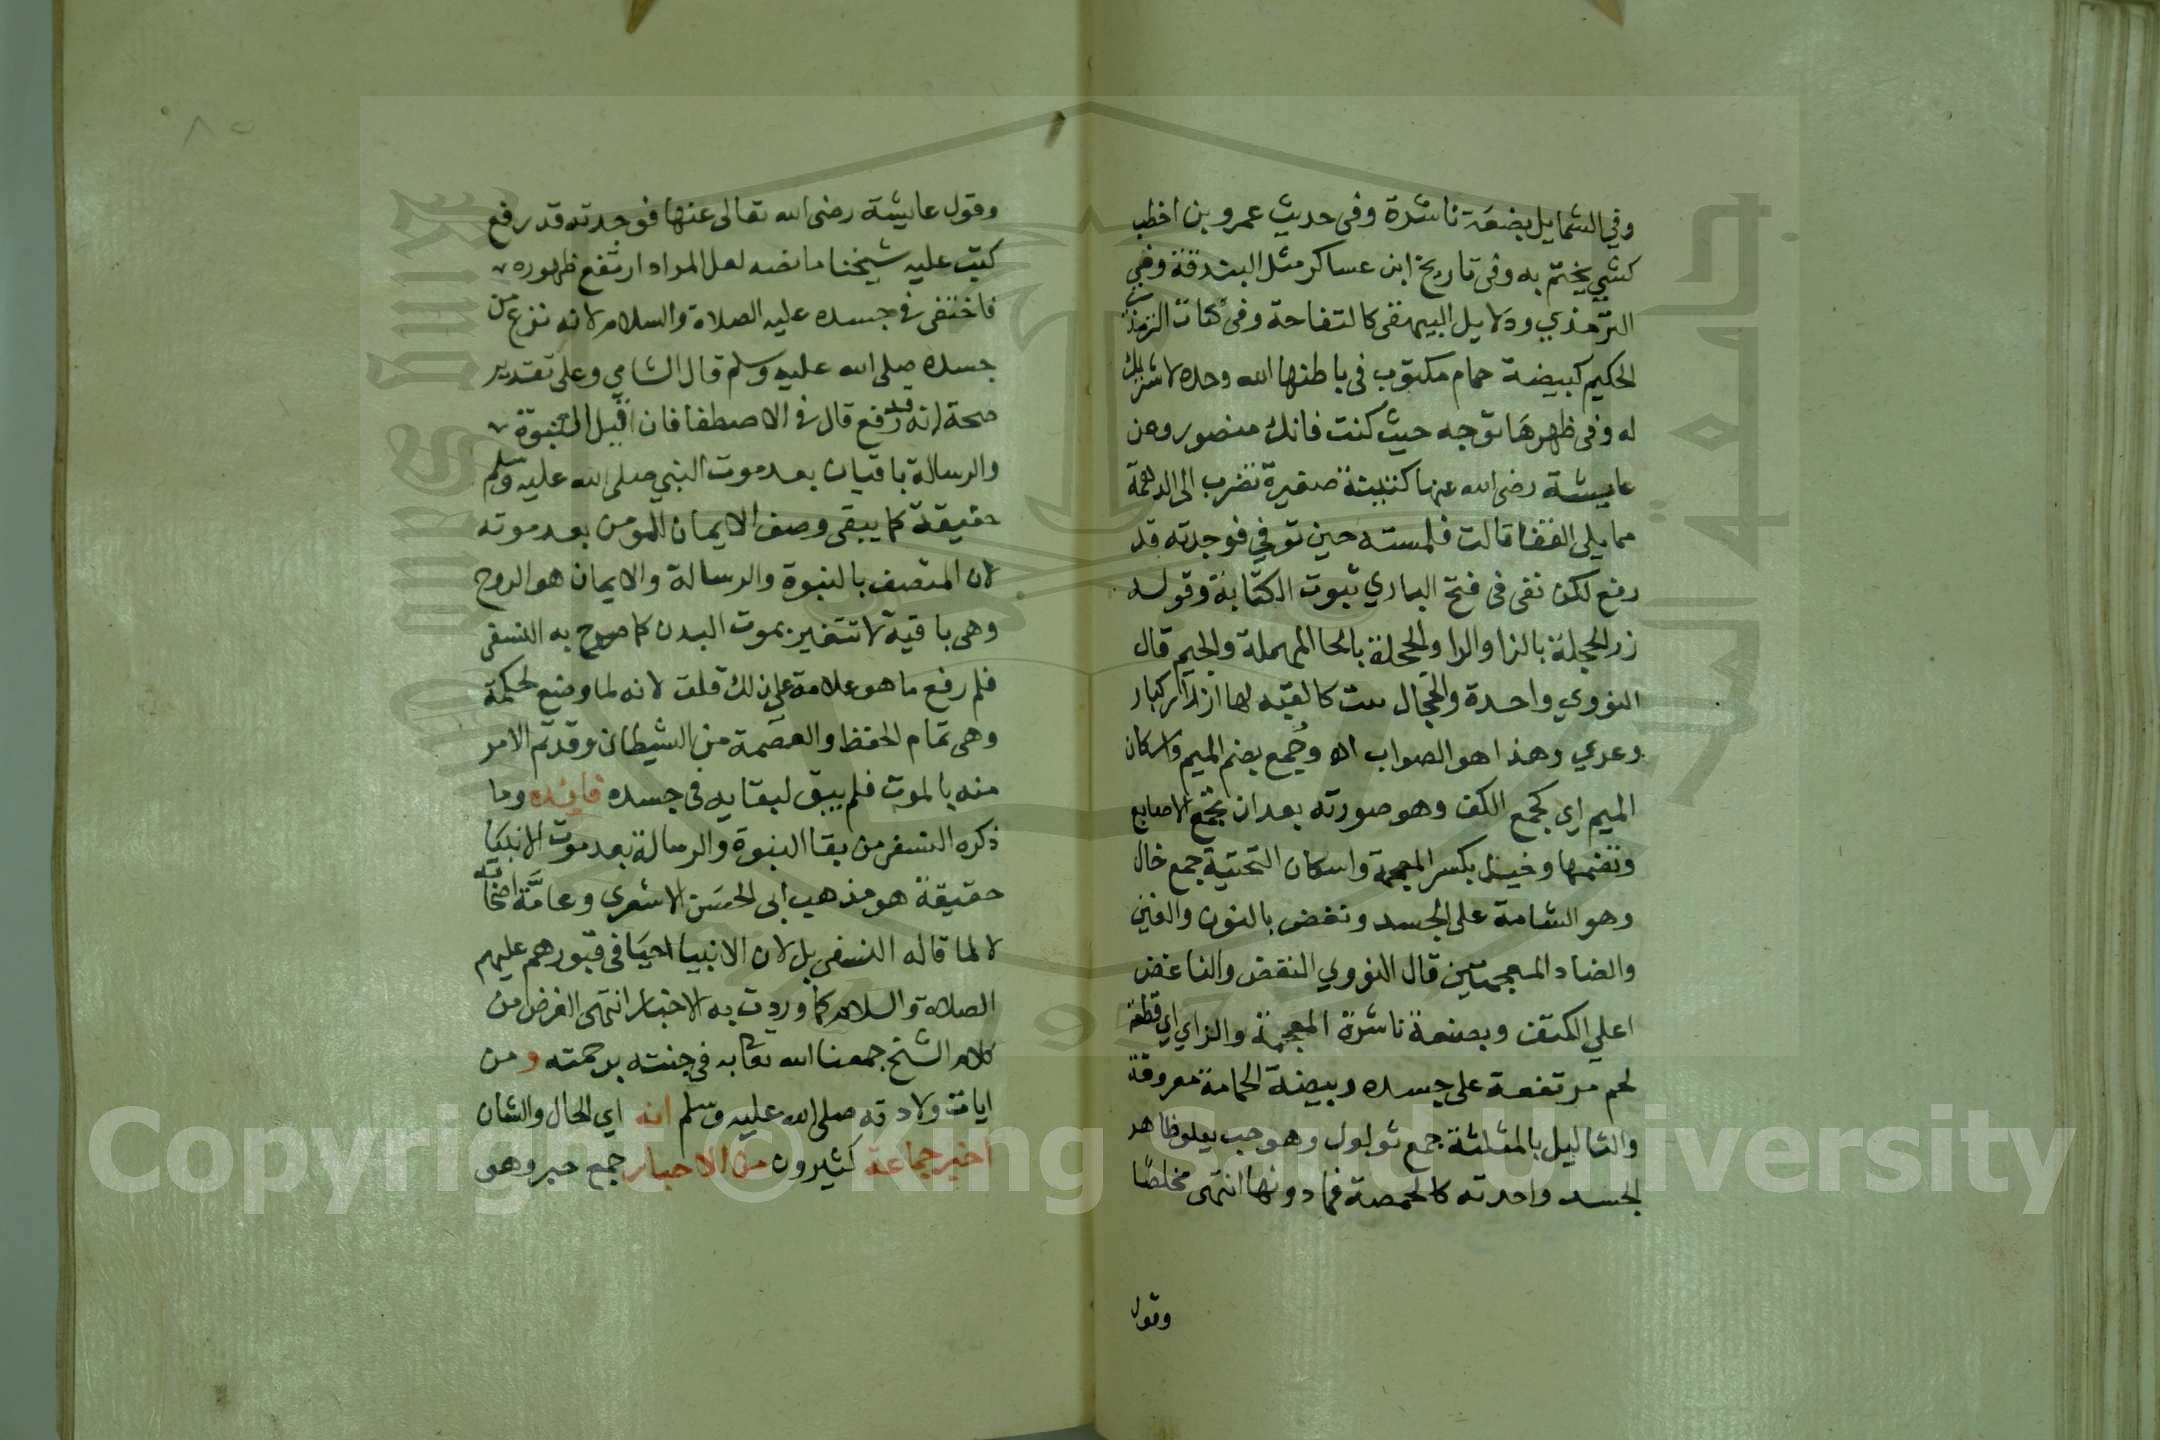 وفي الشمايل بضعة ناشزة وفي حديث عمرو بن اخطب
كشي يختم به وفي تاريخ ابن عساكر مثل البندقة وفي
الترمذي ودلايل البيهقي كالتفاحة وفي كتاب الترمذي
الحكيم كبيضة حمام مكتوب في باطنها الله وحده لا شريك
له وفي ظهرها توجه حيث كنت فانك منصور وعن
عايشة رضي الله عنها كتينة صغيرة تضرب الى الدهمة
مما يلي الفقا قالت فلمسته حين توفي فوجدته قد
رفع لكن نفى في فتح الباري ثبوت الكتابة وقوله
زر الحجلة بالزا والرا والحجلة بالحا المهملة والجيم قال
النووي واحدة والحجال بيت كالقبه لها ازرار كبار
وعري وهذا هو الصواب اه وجمع بضم الميم واسكان
الميم اي كجمع الكف وهو صورته بعد ان تجمع الاصابع
وتضمها وخيلان بكسر المعجمة واسكان التحتية جمع خال
وهو الشامة على الجسد ونغض بالنون والغين
والضاد المعجمتين قال النووي النغض والناغض
اعلي الكتف وبضعة ناشزة المعجمة والزاي اي قطعة
لحم مرتفعة على جسده وبيضة الحمامة معروفة
والثاليل بالمثلثة جمع ثولول وهو حب يعلو ظاهر
الجسد واحدته كالحمصة فما دونها انتهى مخلصا
وقول
وقول عايشة رضي الله تعالى عنها فوجدته قد رفع
كتب عليه شيخنا ما نصه لعل المراد ارتفع ظهوره
فاختفى في جسده عليه الصلاة والسلام لا انه نزع من
جسده صلى الله عليه وسلم قال الشامي وعلى تقدير
صحة انه قد رفع قال في الاصطفا فان قيل النبوة
والرسالة باقيان بعد موت النبي صلى الله عليه وسلم
حقيقة كما يبقى وصف الايمان للمومن بعد موته
لان المتصف بالنبوة والرسالة والايمان هو الروح
وهي باقية لا تتغير بموت البدن كما صرح به النسفي
فلم رفع ما هو علامة على ذلك قلت لانه لما وضع لحكمة
وهي تمام الحفظ والعصمة من الشيطان وقد تم الامر
منه بالموت فلم يبق لبقايه في جسده فايده وما
ذكره النسفي من بقا النبوة والرسالة بعد موت الانبيا
حقيقة هو مذهب ابي الحسن الاشعري وعامة اصحابه
لا لما قاله النسفي بل لان الانبيا احيا في قبورهم عليهم
الصلاة والسلام كما وردت به الاخبار انتهى الغرض من
كلام الشيخ جمعنا الله تعالى به في جنته برحمته و من
ايات ولادته صلى الله عليه وسلم انه اي الحال والشان
اخبر جماعة كثيرون من الاحبار جمع حبر وهو
Copyright © King Saud University